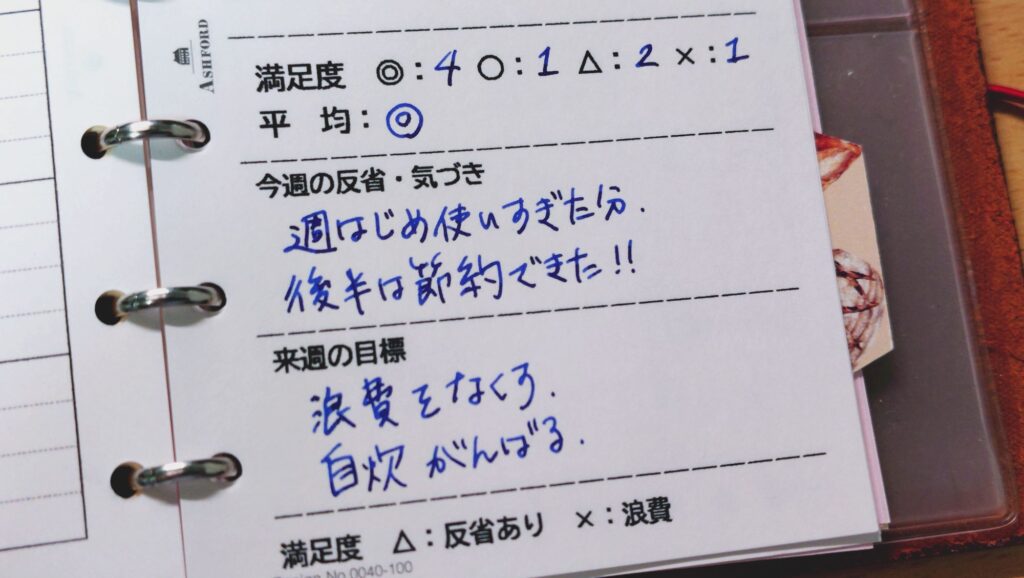 ASHFORD
満足度 ◎:4 ○:1 △:2 ×:1
平 均:◎
今週の反省・気づき
週はじめ使いすぎた分.
後半は節約できた!!
来週の目標
浪費をなくす.
自炊がんばる.
満足度 △:反省あり ×:浪費
Design No.0040-100